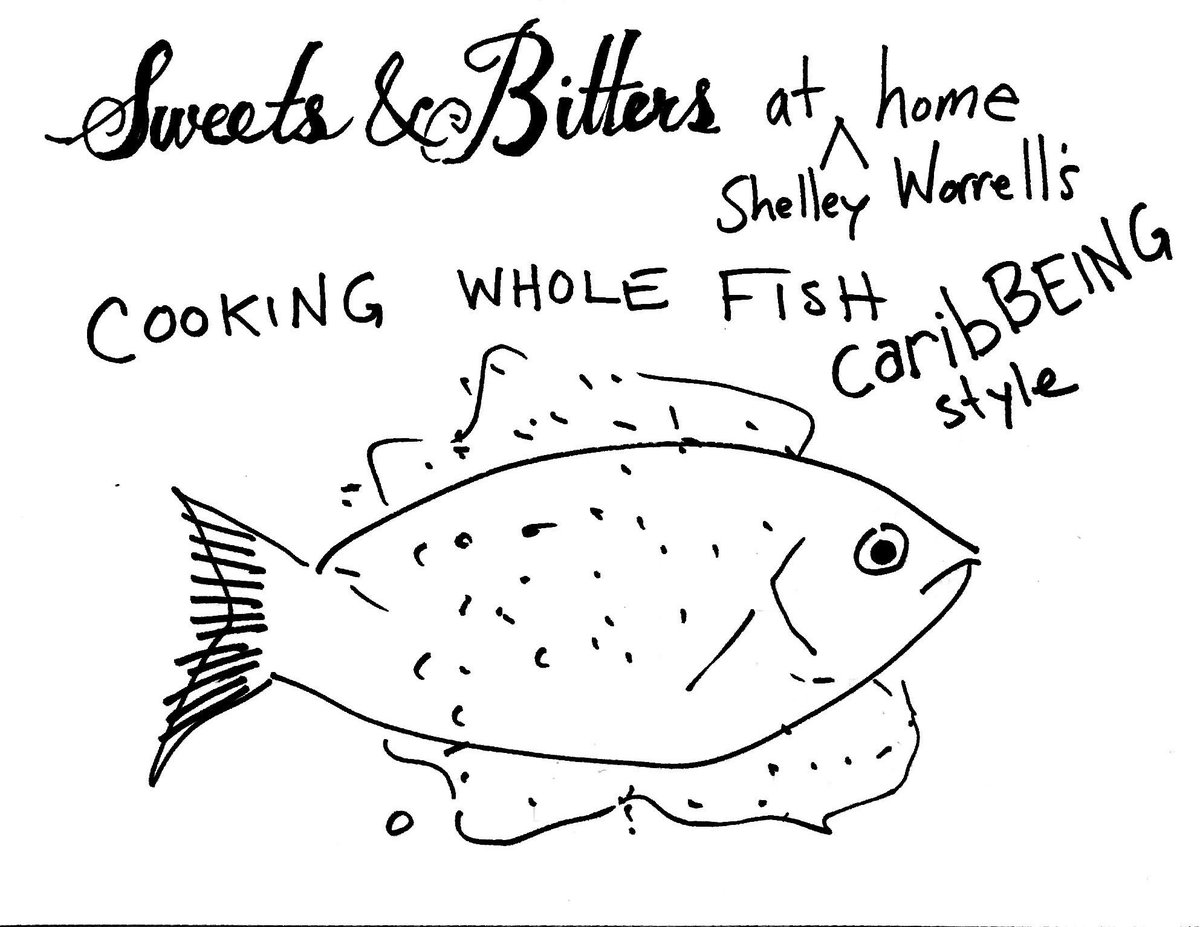 Sweets & Bitters at ^ home
Shelley Worrell's
COOKING WHOLE FISH
caribBEING
style